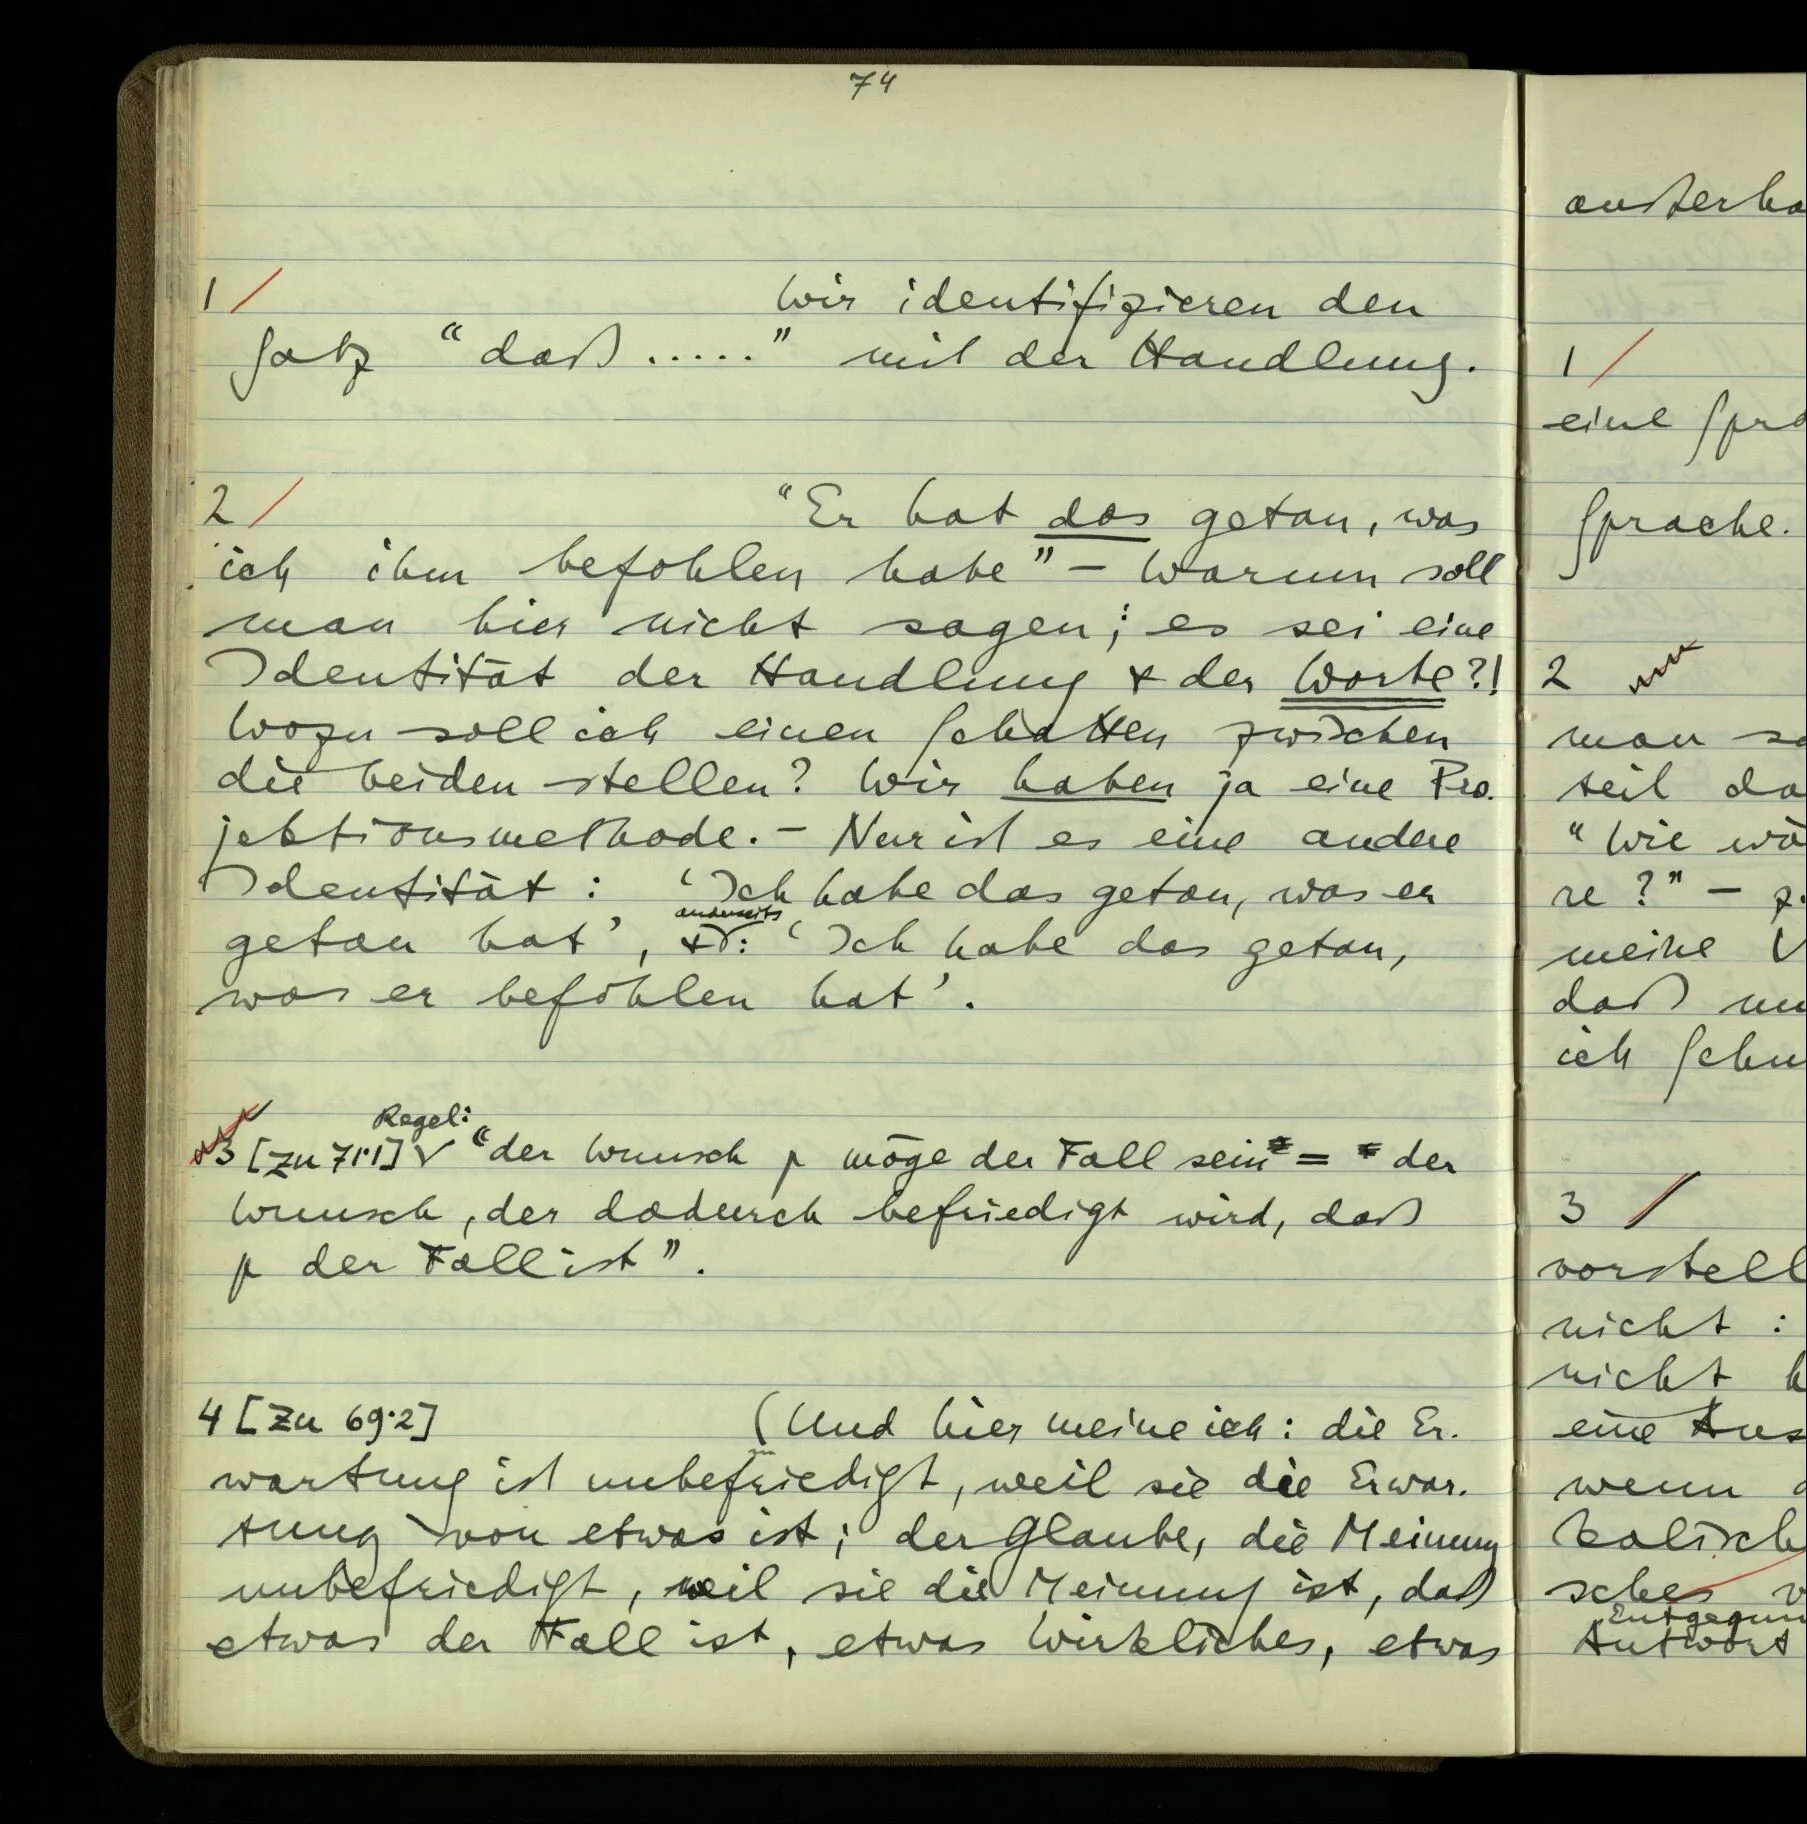 74
1 / Wir identifizieren den
Satz “daß.....” mit der Handlung.
2 / “Er hat das getan, was
ich ihm befohlen habe” – Warum soll
man hier nicht sagen; es sei eine
Identität der Handlung & der Worte?!
Wozu soll ich einen Schatten zwischen
die beiden stellen? Wir haben ja eine Pro-
jektionsmethode. – Nur ist es eine andere
Identität: ‘Ich habe das getan, was er
anderseits
getan hat’, &: ‘Ich habe das getan,
was er befohlen hat’.
Regel:
3 [zu 71·1] ∨ “der Wunsch p möge der Fall sein = der
Wunsch, der dadurch befriedigt wird, daß
p der Fall ist”.
4 [Zu 69·2] (Und hier meine ich: die Er-
wartung ist unbefriedigt, weil sie die Erwar-
tung von etwas ist; der Glaube, die Meinung
unbefriedigt, weil sie die Meinung ist, daß
etwas der Fall ist, etwas Wirkliches, etwas
außerha
1 /
eine Spra
Sprache.
2
man so
teil da
“Wie wä
re?” – z.
meine V
daß
ich Schu
3 /
vorstell
nicht :
nicht k
eine Aus
wenn
kalisch
sches v
Entgegnun
Antwort